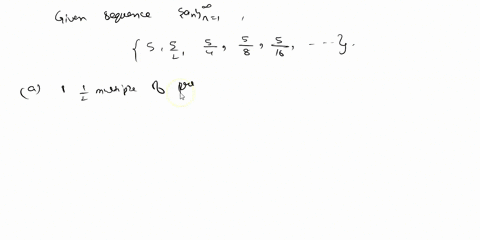 Given sequence {an}∞n=1 ,
{ 5 , 5/2, 5/4 , 5/8 , 5/16 , ---- }.
(a) 1 1/2 multiple of pre